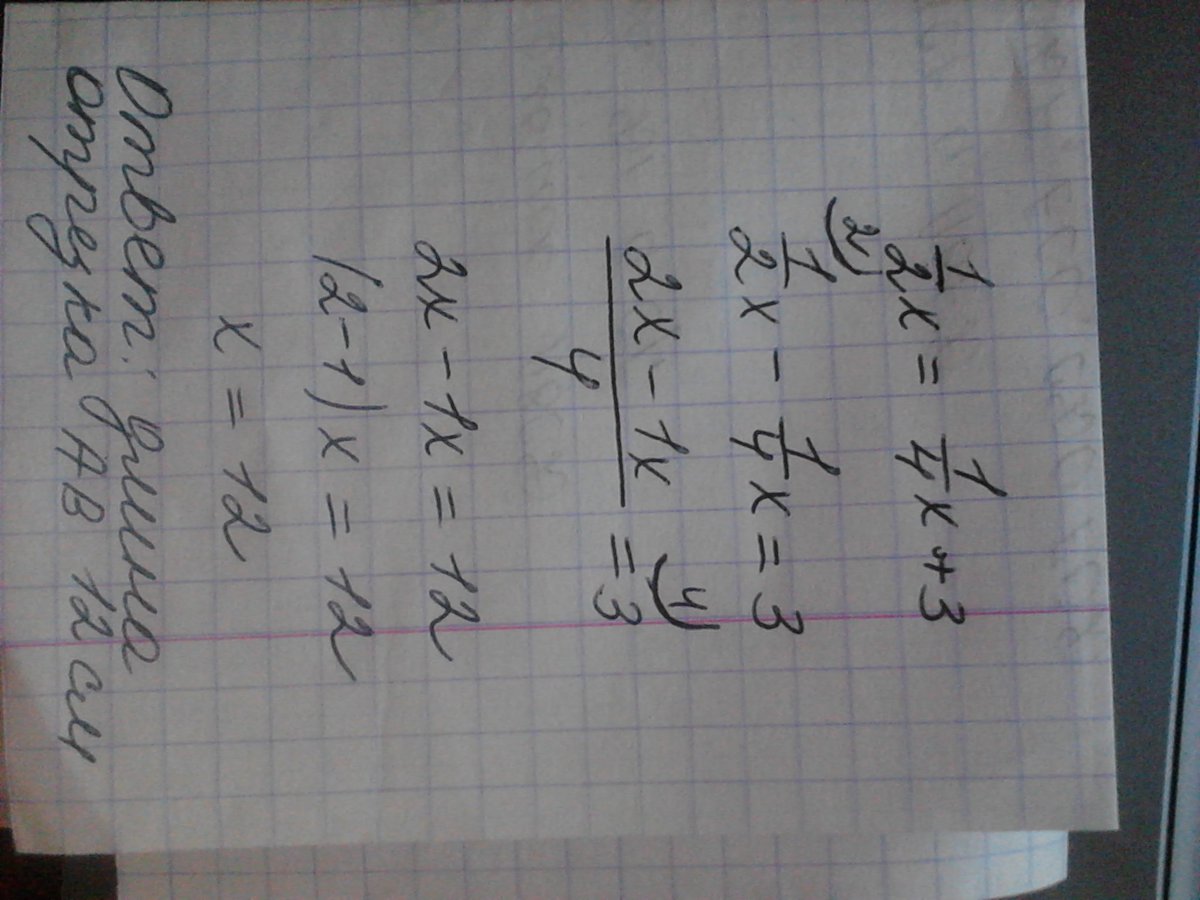 1/2 x = 1/4 x + 3
2) 1/2 x - 1/4 x = 3
(2x - 1x)/4 = 3 (4
2x - 1x = 12
(2-1) x = 12
x = 12
Ответ: длина
отрезка AB 12 см